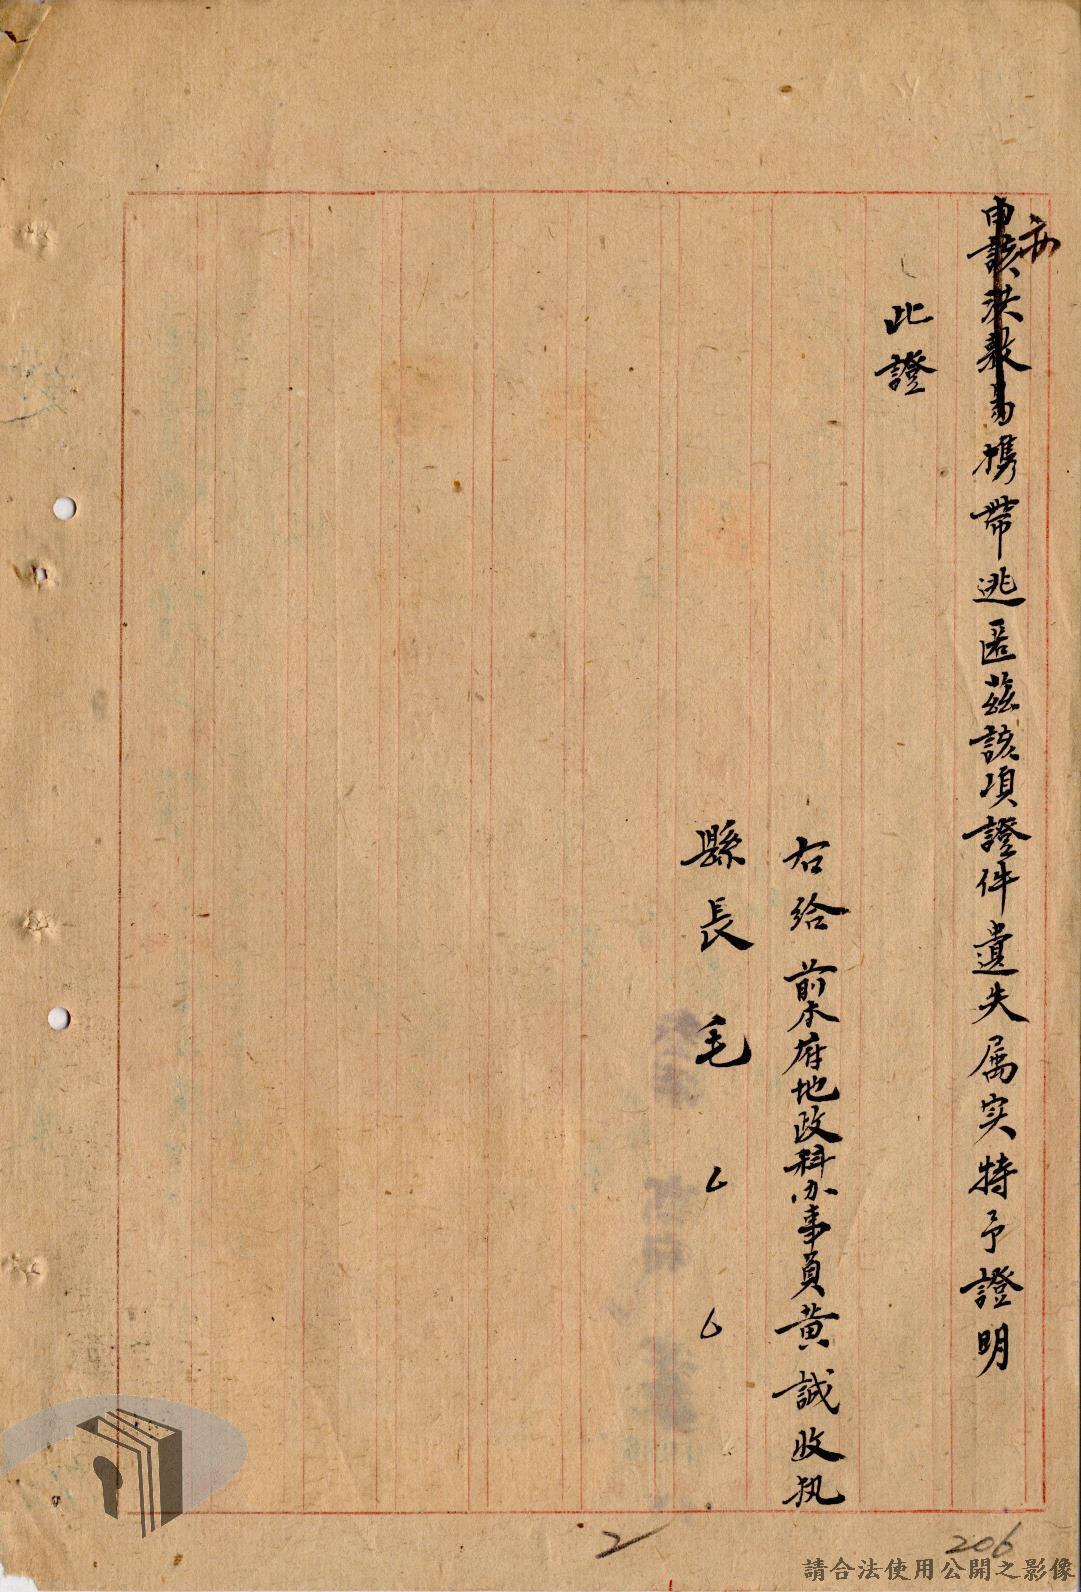 由該洪敷易携帶逃匿茲該項證件遺失属实特予證明
此證
右給前本府地政科办事員黄誠收执
縣長毛
2
206
請合法使用公開之影像